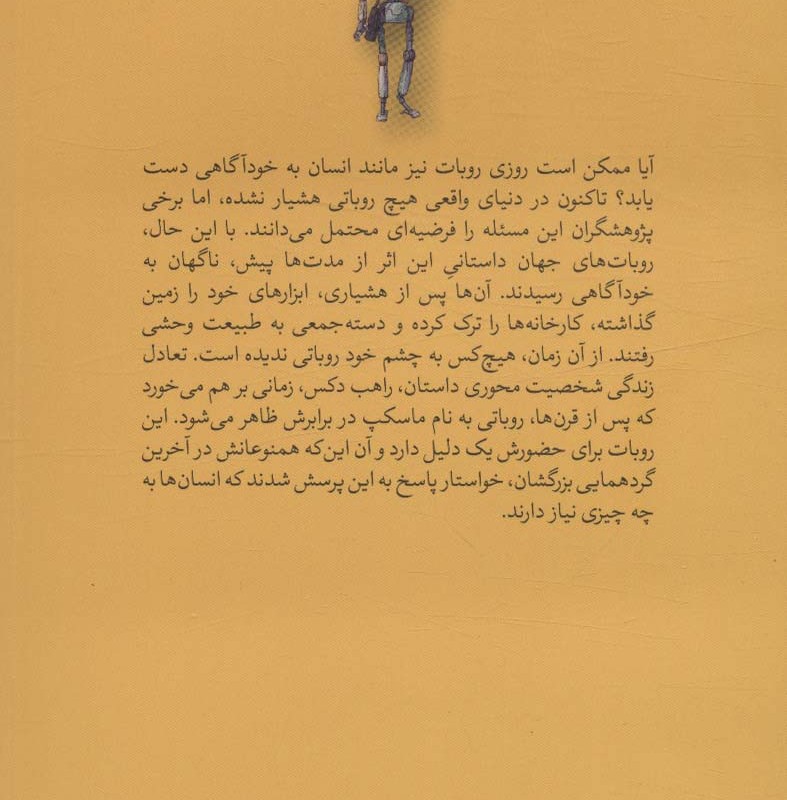 آیا ممکن است روزی روبات نیز مانند انسان به خودآگاهی دست
یابد؟ تاکنون در دنیای واقعی هیچ روباتی هشیار نشده، اما برخی
پژوهشگران این مسئله را فرضیه‌ای محتمل می‌دانند. با این حال،
روبات‌های جهان داستانیِ این اثر از مدت‌ها پیش، ناگهان به
خودآگاهی رسیدند. آن‌ها پس از هشیاری، ابزارهای خود را زمین
گذاشته، کارخانه‌ها را ترک کرده و دسته‌جمعی به طبیعت وحشی
رفتند. از آن زمان، هیچ‌کس به چشم خود روباتی ندیده است. تعادل
زندگی شخصیت محوری داستان، راهب دکس، زمانی بر هم می‌خورد
که پس از قرن‌ها، روباتی به نام ماسکپ در برابرش ظاهر می‌شود. این
روبات برای حضورش یک دلیل دارد و آن این‌که همنوعانش در آخرین
گردهمایی بزرگشان، خواستار پاسخ به این پرسش شدند که انسان‌ها به
چه چیزی نیاز دارند.